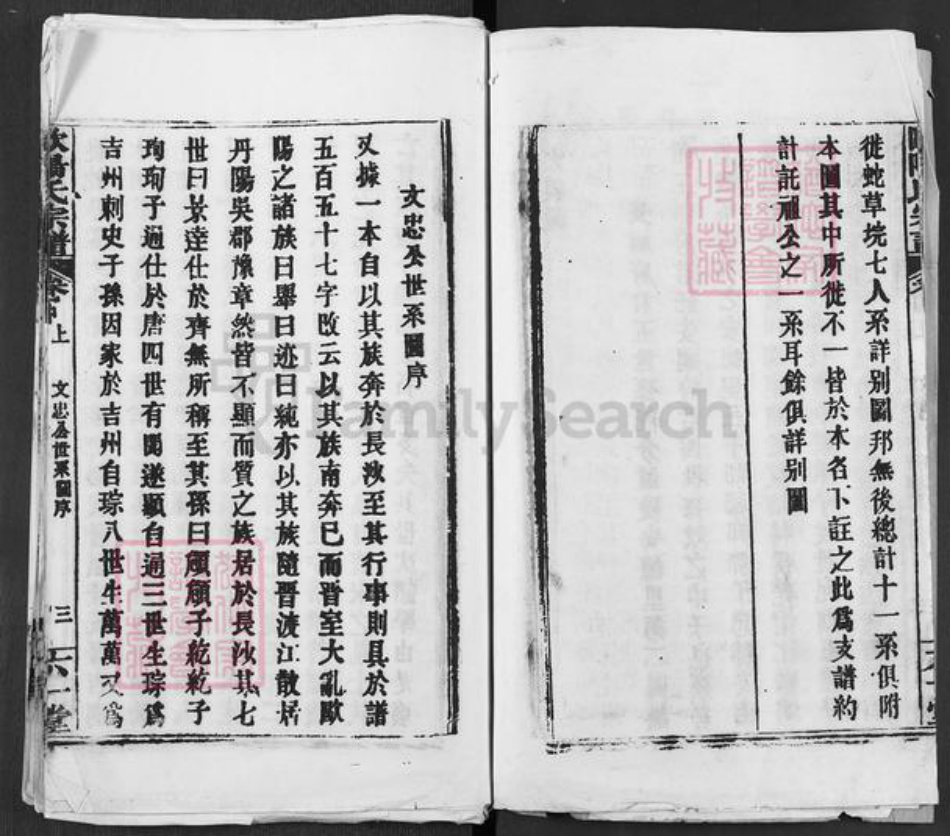 徙蛇草垸七人系詳别圖邦無後總計十一系俱附
本圖其中所徙不一皆於本名下註之此爲支譜約
計託祖公之一系耳餘俱詳别圖
文忠公世系圖序
又據一本自以其族奔於長沙至其行事則具於譜
五百五十七字改云以其族南奔巳而晉室大亂歐
陽之諸族曰舉曰遜曰純亦以其族隨晉渡江散居
丹陽吳郡豫章然皆不顯而質之族居於長沙其七
世曰景達仕於齊無所稱至其孫曰頠頠子紇紇子
珣珣子通仕於唐四世有聞遂顯自通三世生琮爲
吉州刺史子孫因家於吉州自琮八世生萬萬又爲
歐陽氏宗譜
上
文忠公世系圖序
三
六一堂
FamilySearch